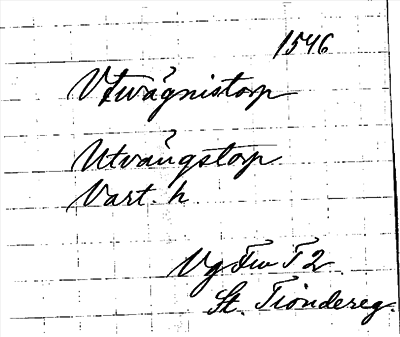 1546
Vtwågnistorp
Utvängstorp
Vart. h
Vg Fw T 2
St. Tiondereg.